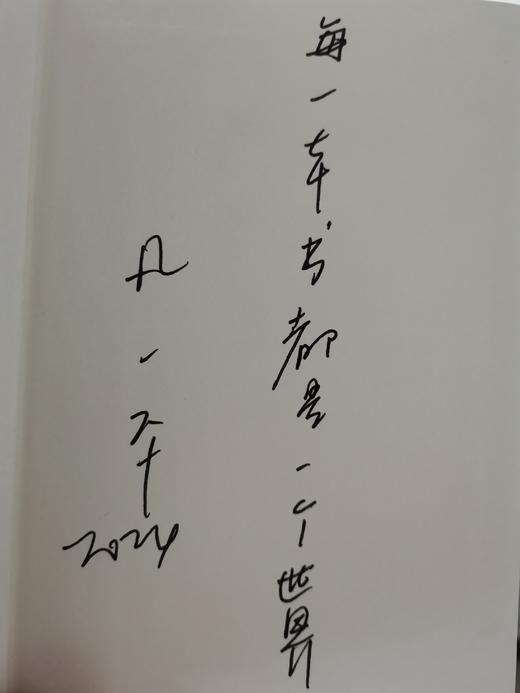 每一本书都是一个世界
凡一平
2024